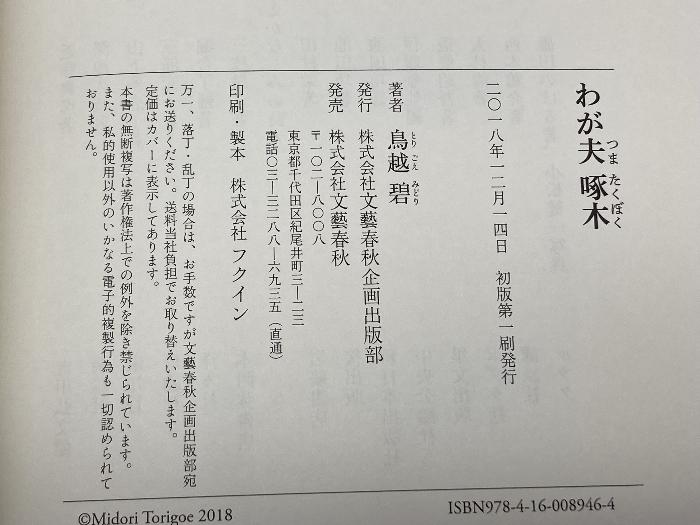 わが夫 啄木
つま たくぼく
二〇一八年一二月一四日 初版第一刷発行
著者 鳥越 碧
とり ごえ みどり
発行 株式会社文藝春秋企画出版部
発売 株式会社文藝春秋
〒一〇二―八〇〇八
東京都千代田区紀尾井町三―二三
電話〇三―三二八八―六九三五(直通)
印刷・製本 株式会社 フクイン
万一、落丁・乱丁の場合は、お手数ですが文藝春秋企画出版部宛
にお送りください。送料当社負担でお取り替えいたします。
定価はカバーに表示してあります。
本書の無断複写は著作権法上での例外を除き禁じられています。
また、私的使用以外のいかなる電子的複製行為も一切認められて
おりません。
©Midori Torigoe 2018
ISBN978-4-16-008946-4